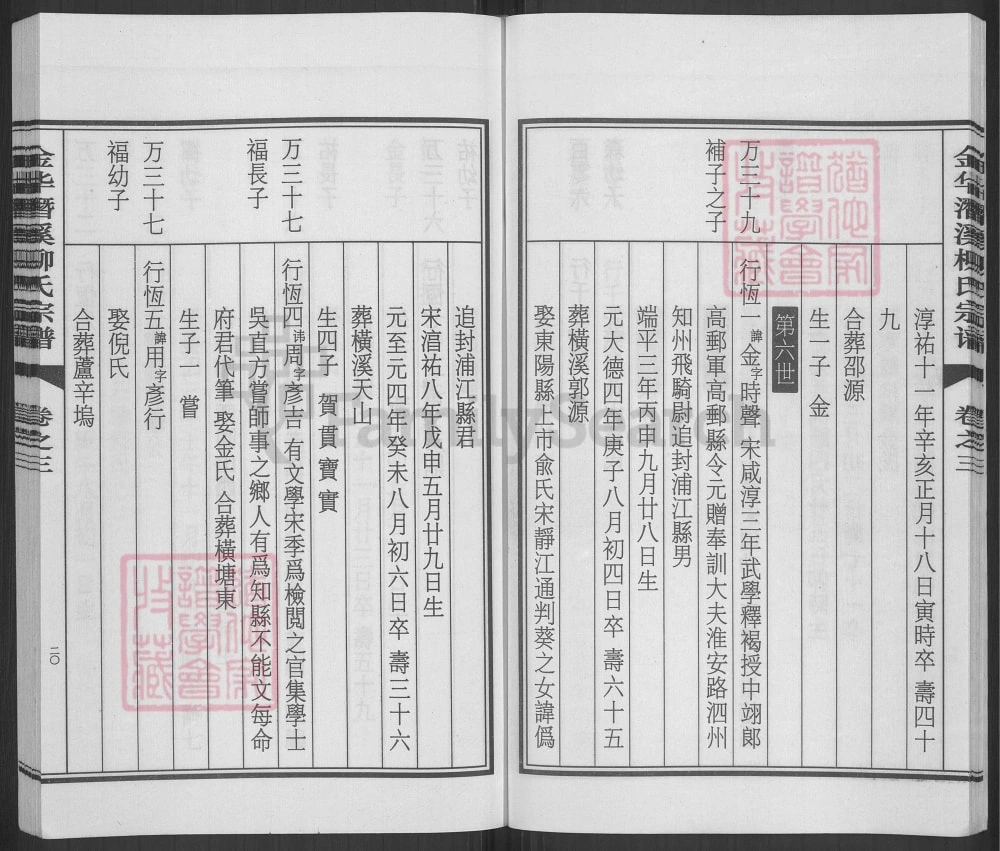 淳祐十一年辛亥正月十八日寅時卒 壽四十
九
合葬邵源
生一子 金
第六世
万三十九
補子之子
行恆一 諱金字時聲 宋咸淳三年武學釋褐授中翊郎
高郵軍高郵縣令元贈奉訓大夫淮安路泗州
知州飛騎尉追封浦江縣男
端平三年丙申九月廿八日生
元大德四年庚子八月初四日卒 壽六十五
葬橫溪郭源
娶東陽縣上市俞氏宋靜江通判葵之女諱僞
追封浦江縣君
宋淊祐八年戊申五月廿九日生
元至元四年癸未八月初六日卒 壽三十六
葬橫溪天山
生四子 賀 貫 寶 實
万三十七
福長子
行恆四 讳周字彥吉 有文學宋季爲檢閱之官集學士
吳直方嘗師事之鄉人有爲知縣不能文每命
府君代筆 娶金氏 合葬橫塘東
生子一 嘗
万三十七
福幼子
行恆五 諱用字彥行
娶倪氏
合葬蘆辛塢
二〇
卷之三
FamilySearch